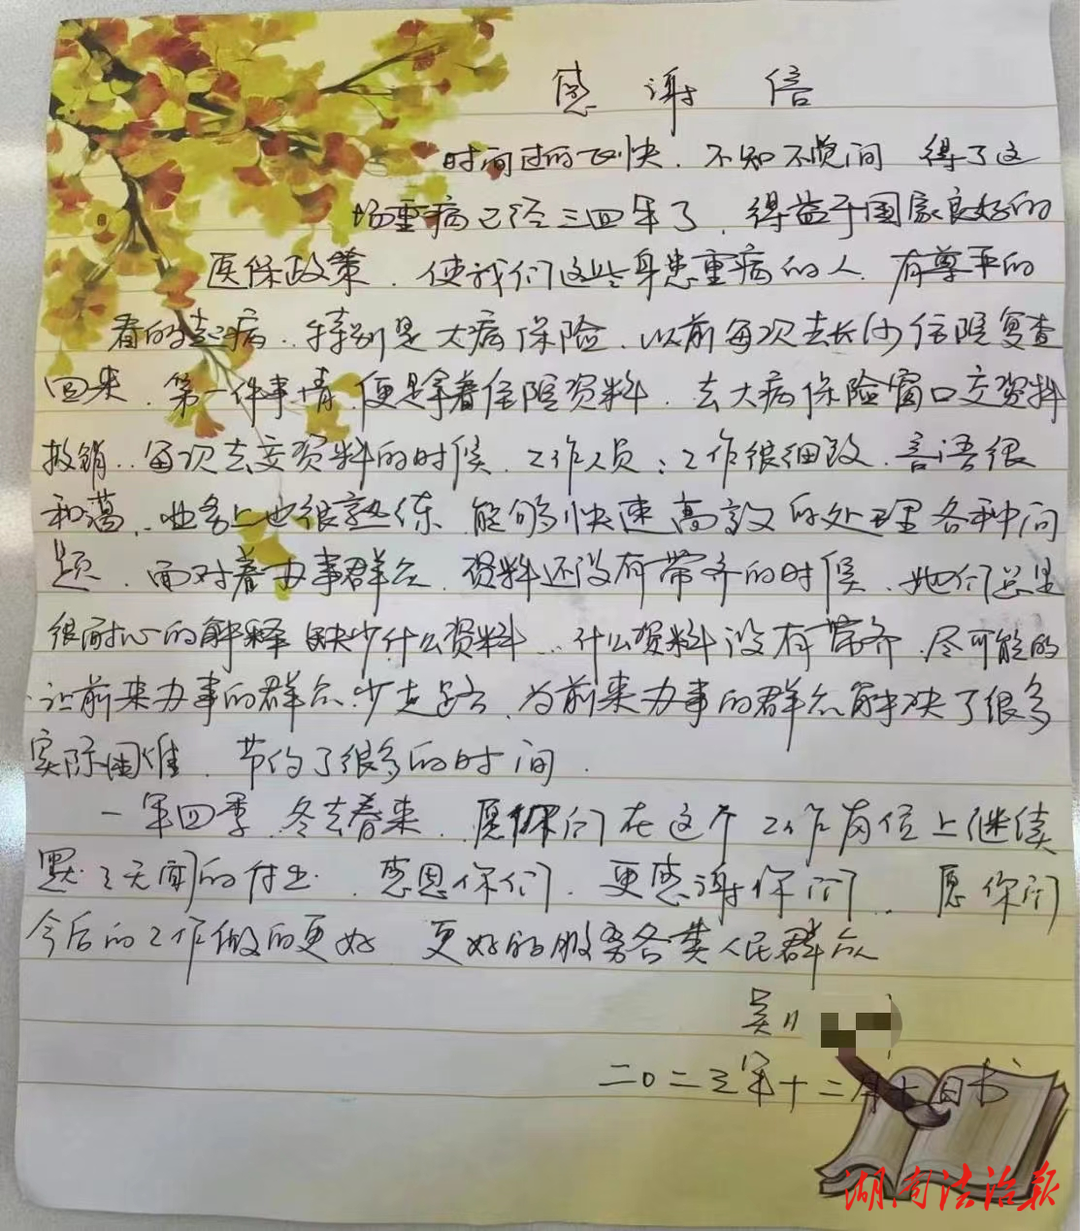 感谢信
时间过的飞快．不知不觉间 得了这
场重病已经三四年了，得益于国家良好的
医保政策．使我们这些身患重病的人．有尊严的
看的起病．．特别是大病保险．以前每次去长沙住院复查
回来．第一件事情．便是拿着住院资料．去大病保险窗口交资料
报销．．每次去交资料的时候．工作人员：工作很细致．言语很
和蔼．业务上也很熟练 能够快速高效的处理各种问
题．面对着办事群众．资料还没有带齐的时候．她们总是
很耐心的解释 缺少什么资料．．什么资料没有带齐．尽可能的
让前来办事的群众少走路．为前来办事的群众解决了很多
实际困难．节约了很多的时间．
一年四季．冬去春来．愿你们在这个工作岗位上继续
默默无闻的付出．感恩你们．更感谢你们．．愿你们
今后的工作做的更好．更好的服务各类人民群众
吴
二〇二三年十二月十日书
湖南法治报